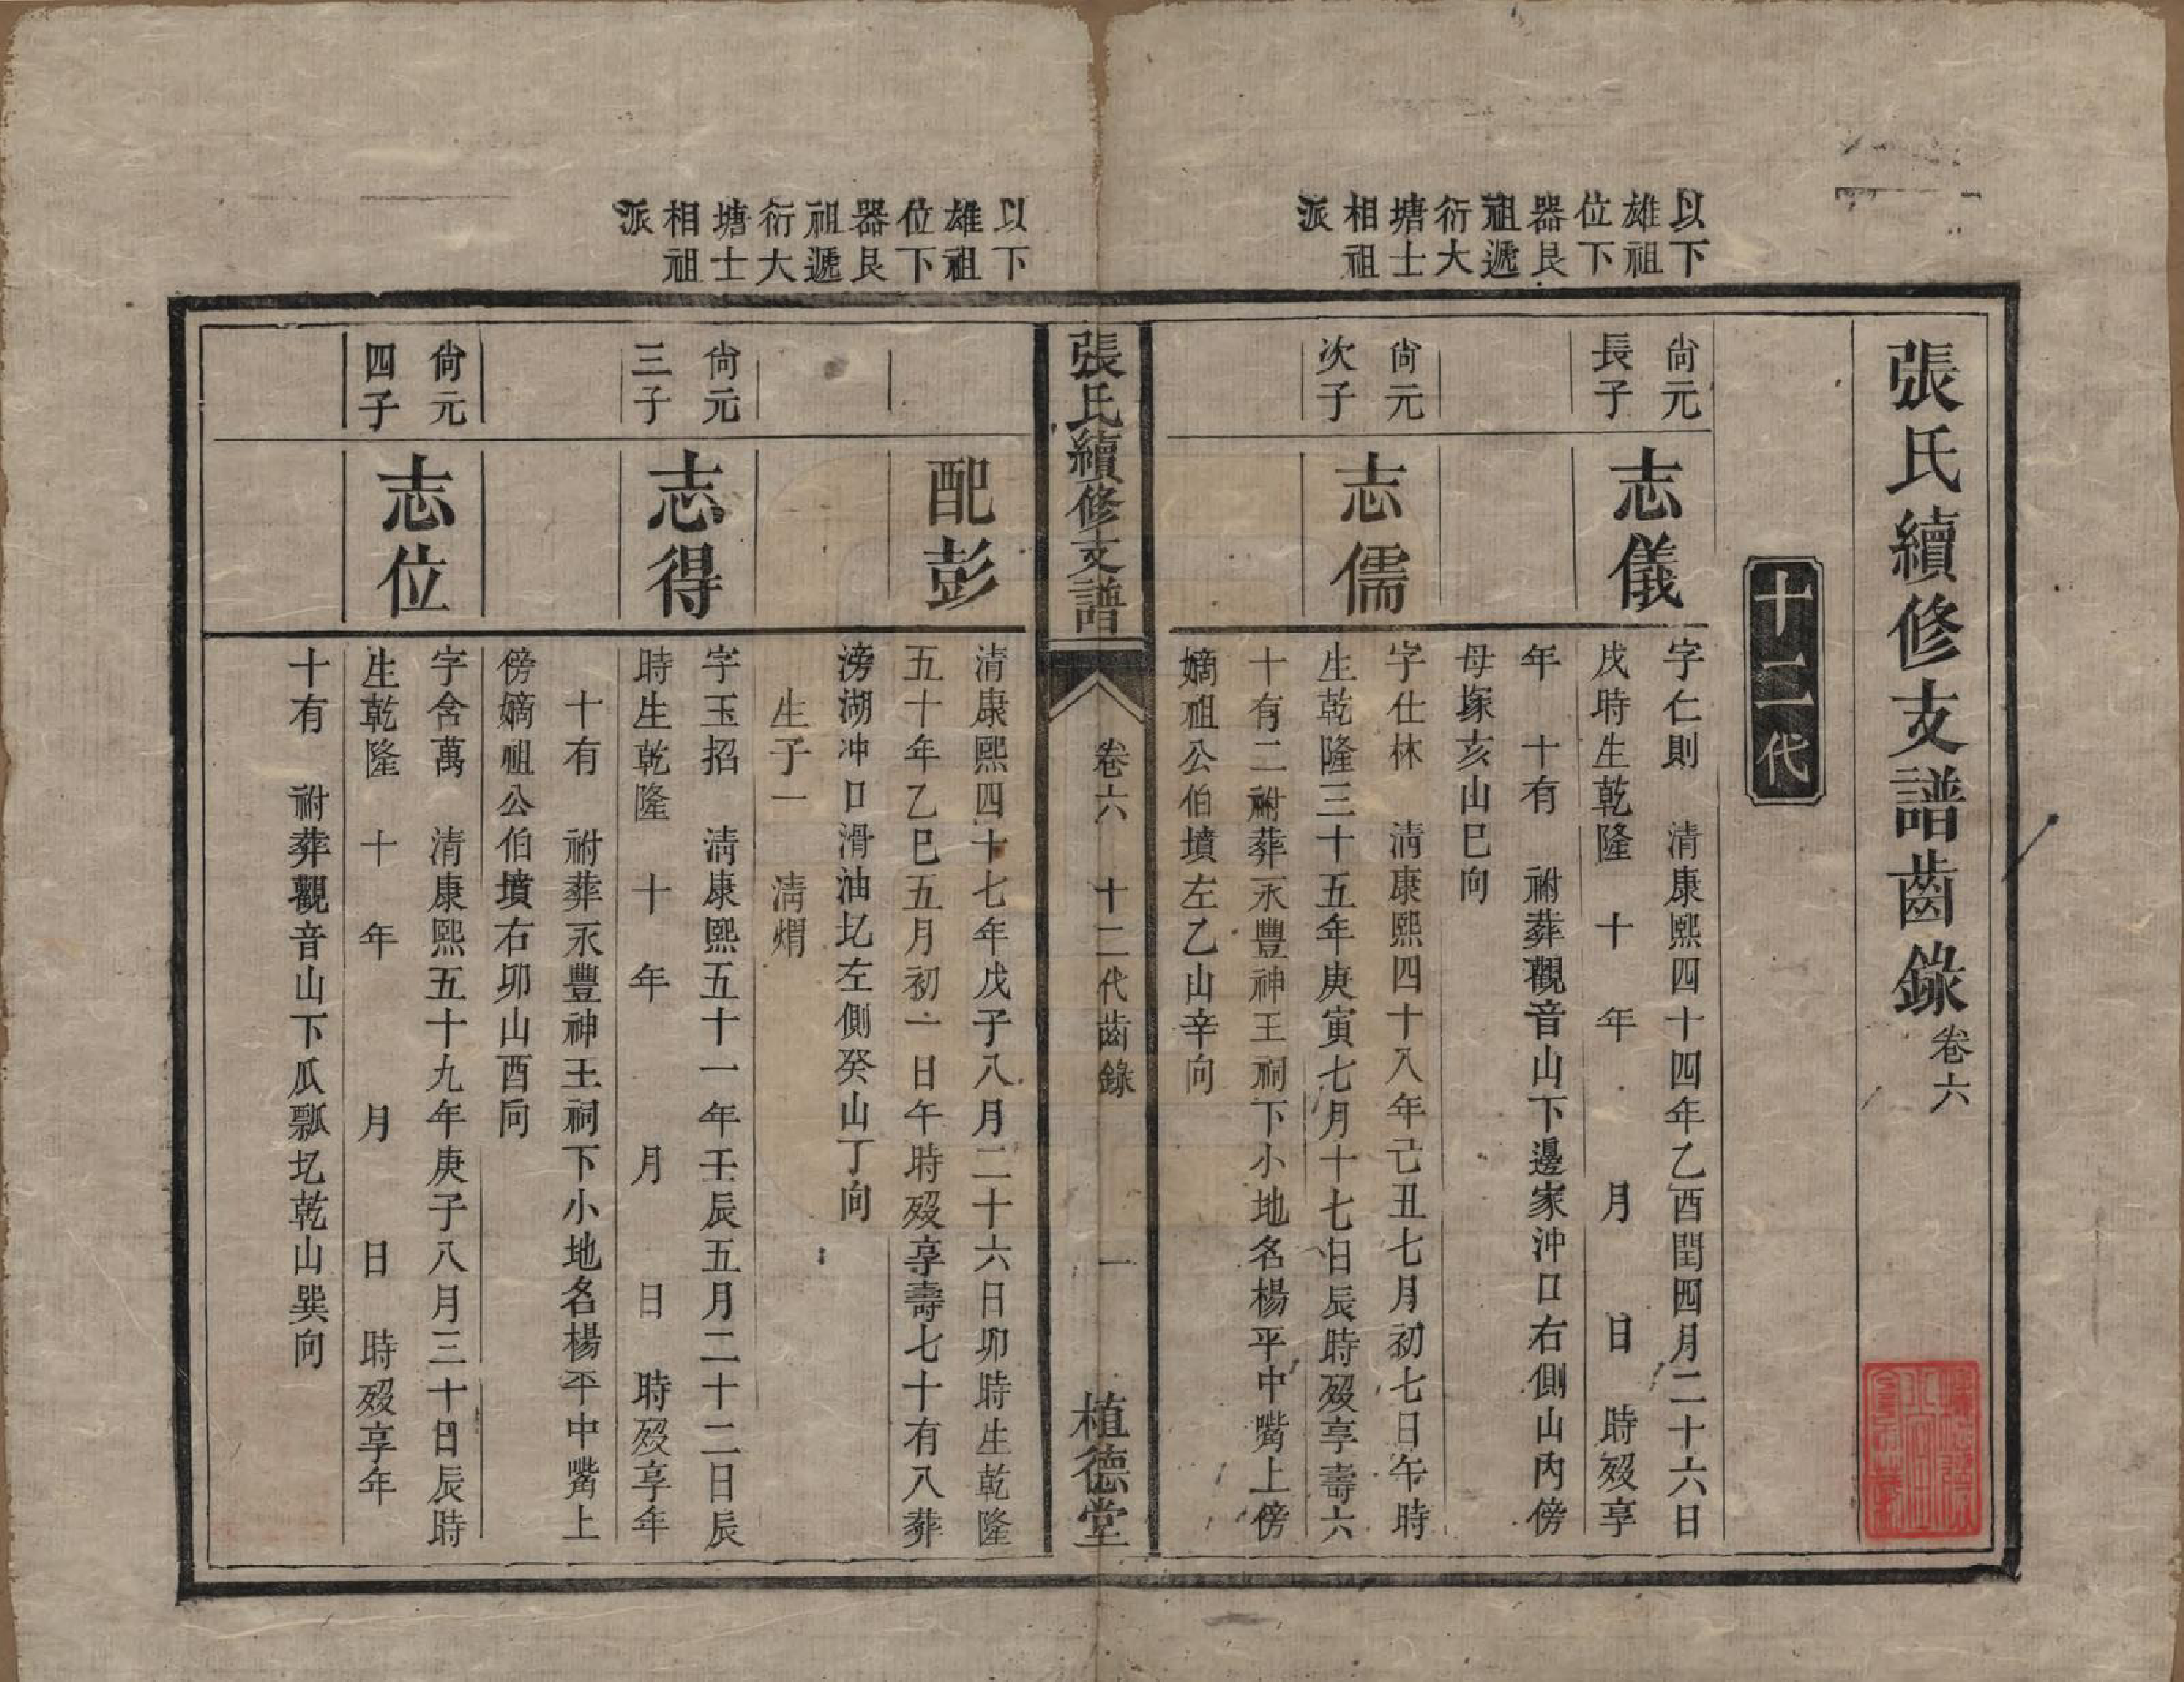 張氏續修支譜齒錄卷六
十二代
以下
雄祖
位下
器艮
祖遞
衍大
塘士
相祖
派
尙元
長子
志儀
字仁則 清康熙四十四年乙酉閏四月二十六日
戌時生乾隆 十 年 月 日 時歿享
年 十有 祔葬觀音山下邊家沖口右側山內傍
母塚亥山巳向
尙元
次子
志儒
字仕林 淸康熙四十八年己丑七月初七日午時
生乾隆三十五年庚寅七月十七日辰時歿享壽六
十有二祔葬永豐神王祠下小地名楊平中嘴上傍
嫡祖公伯墳左乙山辛向
張氏續修支譜
卷六 十二代齒錄
一
植德堂
以下
雄祖
位下
器艮
祖遞
衍大
塘士
相祖
派
配彭
清康熙四十七年戊子八月二十六日卯時生乾隆
五十年乙巳五月初一日午時歿享壽七十有八葬
滂湖冲口滑油圠左側癸山丁向
生子一 淸爛
尙元
三子
志得
字玉招 淸康熙五十一年壬辰五月二十二日辰
時生乾隆 十 年 月 日 時歿享年
十有 祔葬永豐神王祠下小地名楊平中嘴上
傍嫡祖公伯墳右卯山酉向
尙元
四子
志位
字含萬 清康熙五十九年庚子八月三十日辰時
生乾隆 十 年 月 日 時歿享年
十有 祔葬觀音山下瓜瓢圠乾山巽向